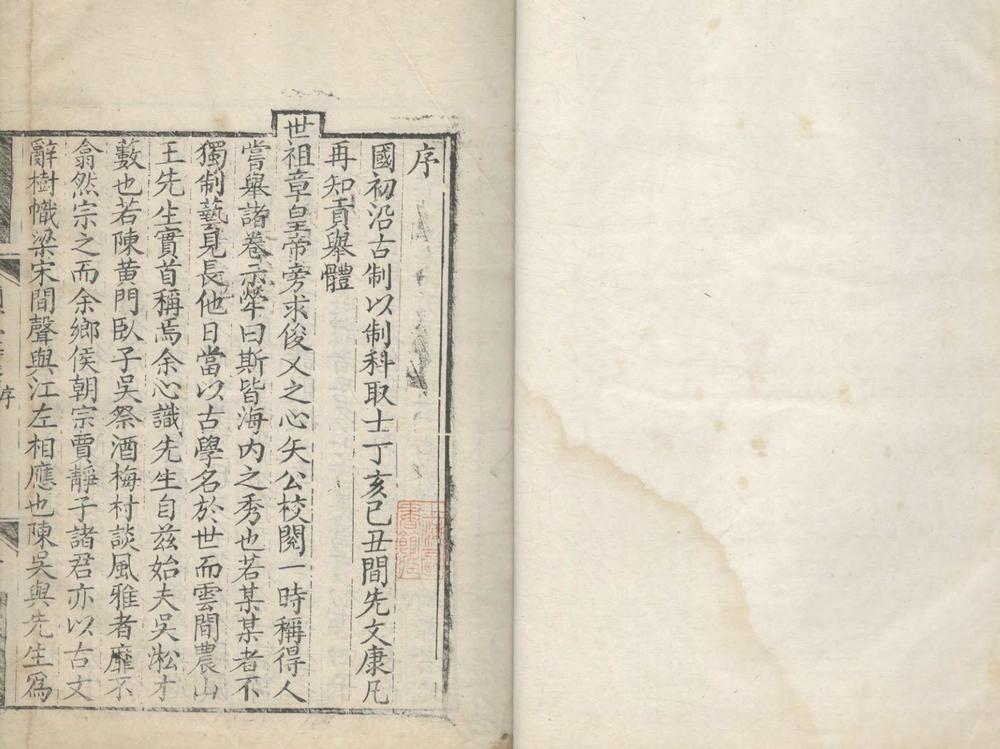 序
國初沿古制以制科取士丁亥己丑間先文康凡
再知貢舉體
世祖章皇帝旁求俊乂之心矢公校閱一時稱得人
嘗舉諸卷示犖曰斯皆海内之秀也若某某者不
獨制藝見長他日當以古學名於世而雲間農山
王先生實首稱焉余心識先生自兹始夫吳淞才
藪也若陳黄門臥子吳祭酒梅村談風雅者靡不
翕然宗之而余鄉侯朝宗賈靜子諸君亦以古文
辭樹幟梁宋間聲與江左相應也陳吳與先生爲
序